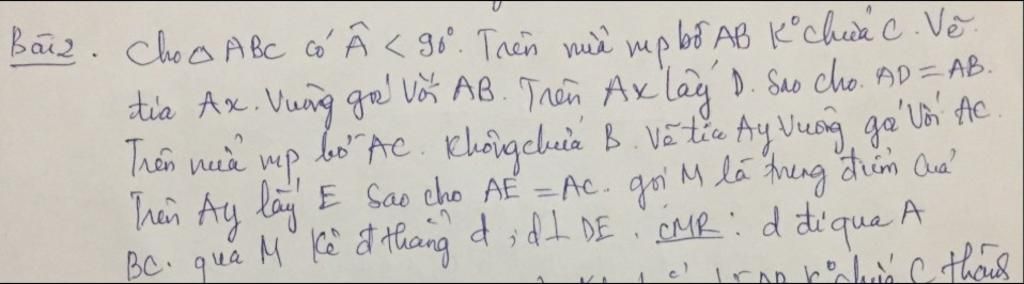 Bài 2. Cho △ ABC có Â < 90°. Trên nửa mp bờ AB K° chứa C. Vẽ
tia Ax. Vuông góc Với AB. Trên Ax lấy D. Sao cho. AD = AB.
Trên nửa mp bờ AC. Không chứa B. Vẽ tia Ay Vuông góc Với AC.
Trên Ay lấy E Sao cho AE = AC. gọi M là trung điểm của
BC. qua M Kẻ đ thẳng d, d ⊥ DE. CMR: d đi qua A
K° chứa C